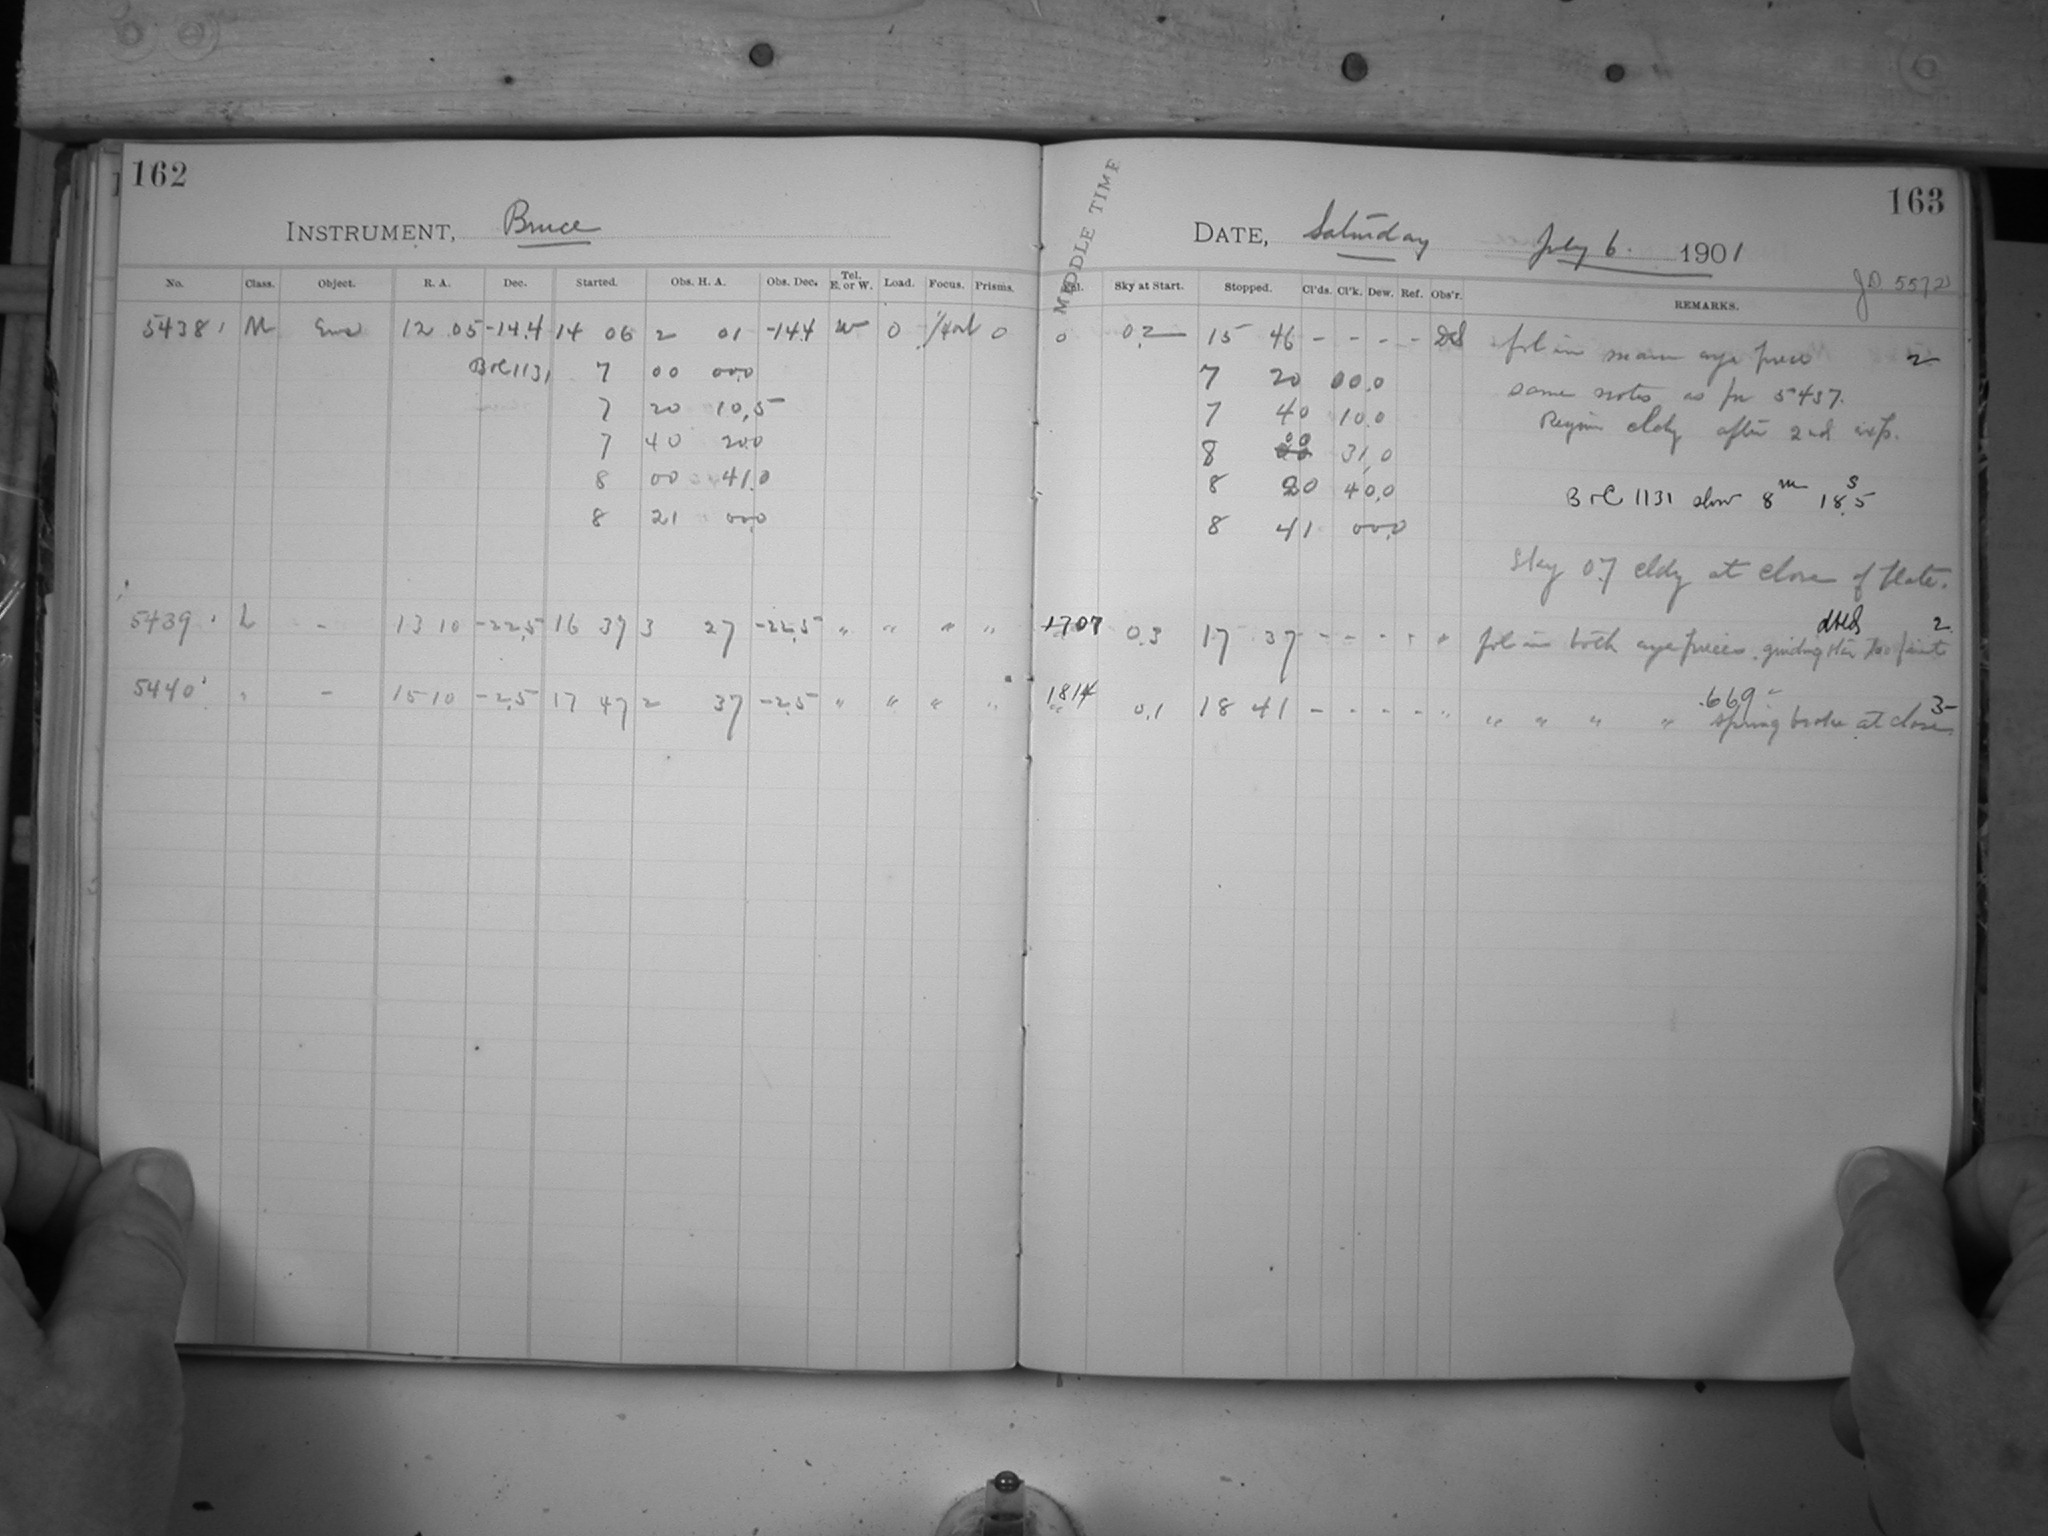 162
INSTRUMENT, Bruce
No. Class. Object. R. A. Dec. Started. Obs. H. A. Obs. Dec. Tel. E. or W. Load. Focus. Prisms.
5438 M Eros 12 05 -14.4 14 06 2 01 -14.4 W 0 0
B&C 1131 7 00 00.0
7 20 10.5
7 40 20.0
8 00 41.0
8 21 00.0
5439 L - 13 10 -22.5 16 37 3 27 -22.5 " " " "
5440 " - 15 10 -2.5 17 47 2 37 -2.5 " " " "
163
MIDDLE TIME
DATE, Saturday July 6. 1901
JD 5572
Sky at Start. Stopped. Cl'ds. Cl'k. Dew. Ref. Obs'r. REMARKS.
0 0.2 15 46 - - - - fol in main eye piece 2
7 20 00.0 same notes as for 5437.
7 40 10.0 Region cldy after 2nd exp.
8 00 31.0
8 20 40.0 B&C 1131 slow 8m 18.5s
8 41 00.0
Sky 0.7 cldy at close of plate.
1707 0.3 17 37 - - - - " fol in both eye pieces. guiding star too faint 2
1814 " 0.1 18 41 - - - - " " " " " .669 spring broke at close 3